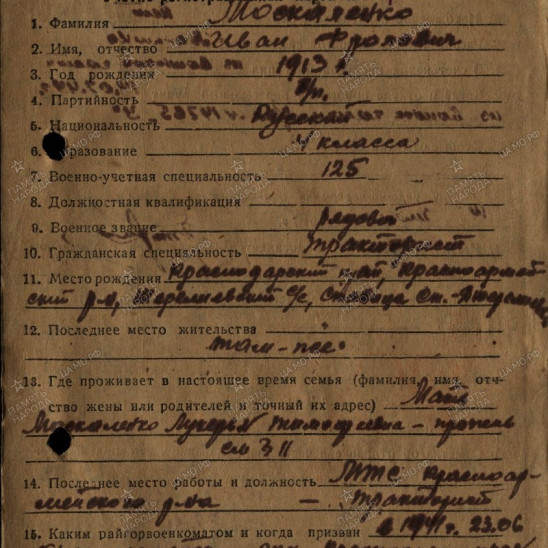 1. Фамилия Москаленко
2. Имя, отчество Иван Фролович
3. Год рождения 1913 г.
4. Партийность б/п.
5. Национальность Русский
6. Образование 4 класса
7. Военно-учетная специальность 125
8. Должностная квалификация
9. Военное звание рядовой
10. Гражданская специальность тракторист
11. Место рождения Краснодарский край, Красноармей-
ский р-н, с/с, станица Ст.-
12. Последнее место жительства
там-же
13. Где проживает в настоящее время семья (фамилия, имя, отч-
ство жены или родителей и точный их адрес) Мать
Москаленко Лукерья Тимофеевна – прожив
см 3 11
14. Последнее место работы и должность МТС Красноар-
мейского р-на – тракторист
15. Каким райгорвоенкоматом и когда призван в 1941 г. 23.06